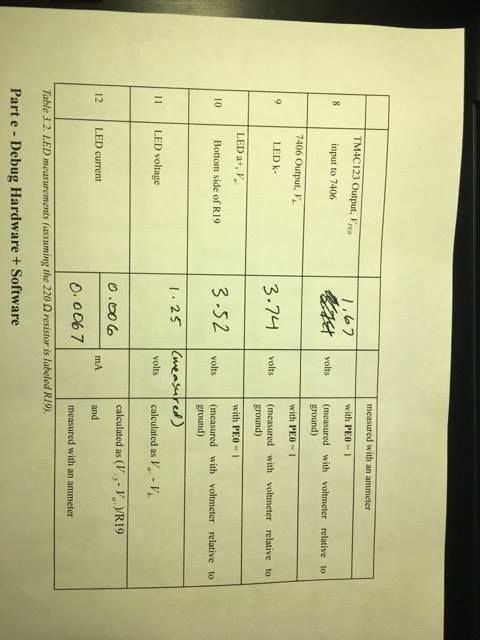 measured with an ammeter
8
TM4C123 Output, VPE0
input to 7406
1.67
volts
with PE0 = 1
(measured with voltmeter relative to
ground)
9
7406 Output, Vk-
LED k-
3.74
volts
with PE0 = 1
(measured with voltmeter relative to
ground)
10
LED a+, Va+
Bottom side of R19
3.52
volts
with PE0 = 1
(measured with voltmeter relative to
ground)
11
LED voltage
1.25
(measured)
volts
calculated as Va+ - Vk-
12
LED current
0.006
0.0067
mA
calculated as (V+5 - Va+)/R19
and
measured with an ammeter
Table 3.2. LED measurements (assuming the 220 Ω resistor is labeled R19).
Part e - Debug Hardware + Software